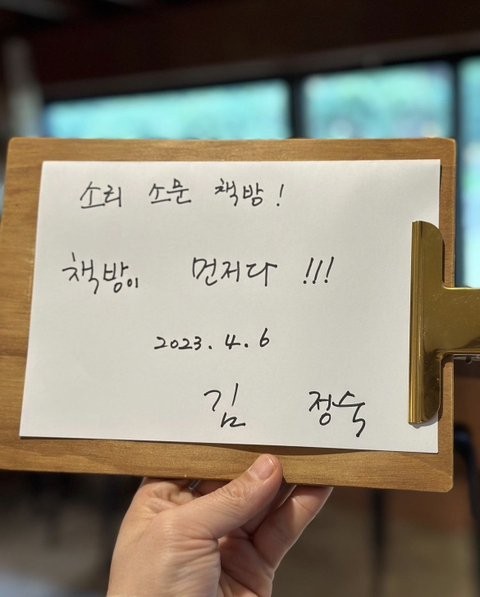 소리 소문 책방!
책방이 먼저다 !!!
2023. 4. 6
김 정숙